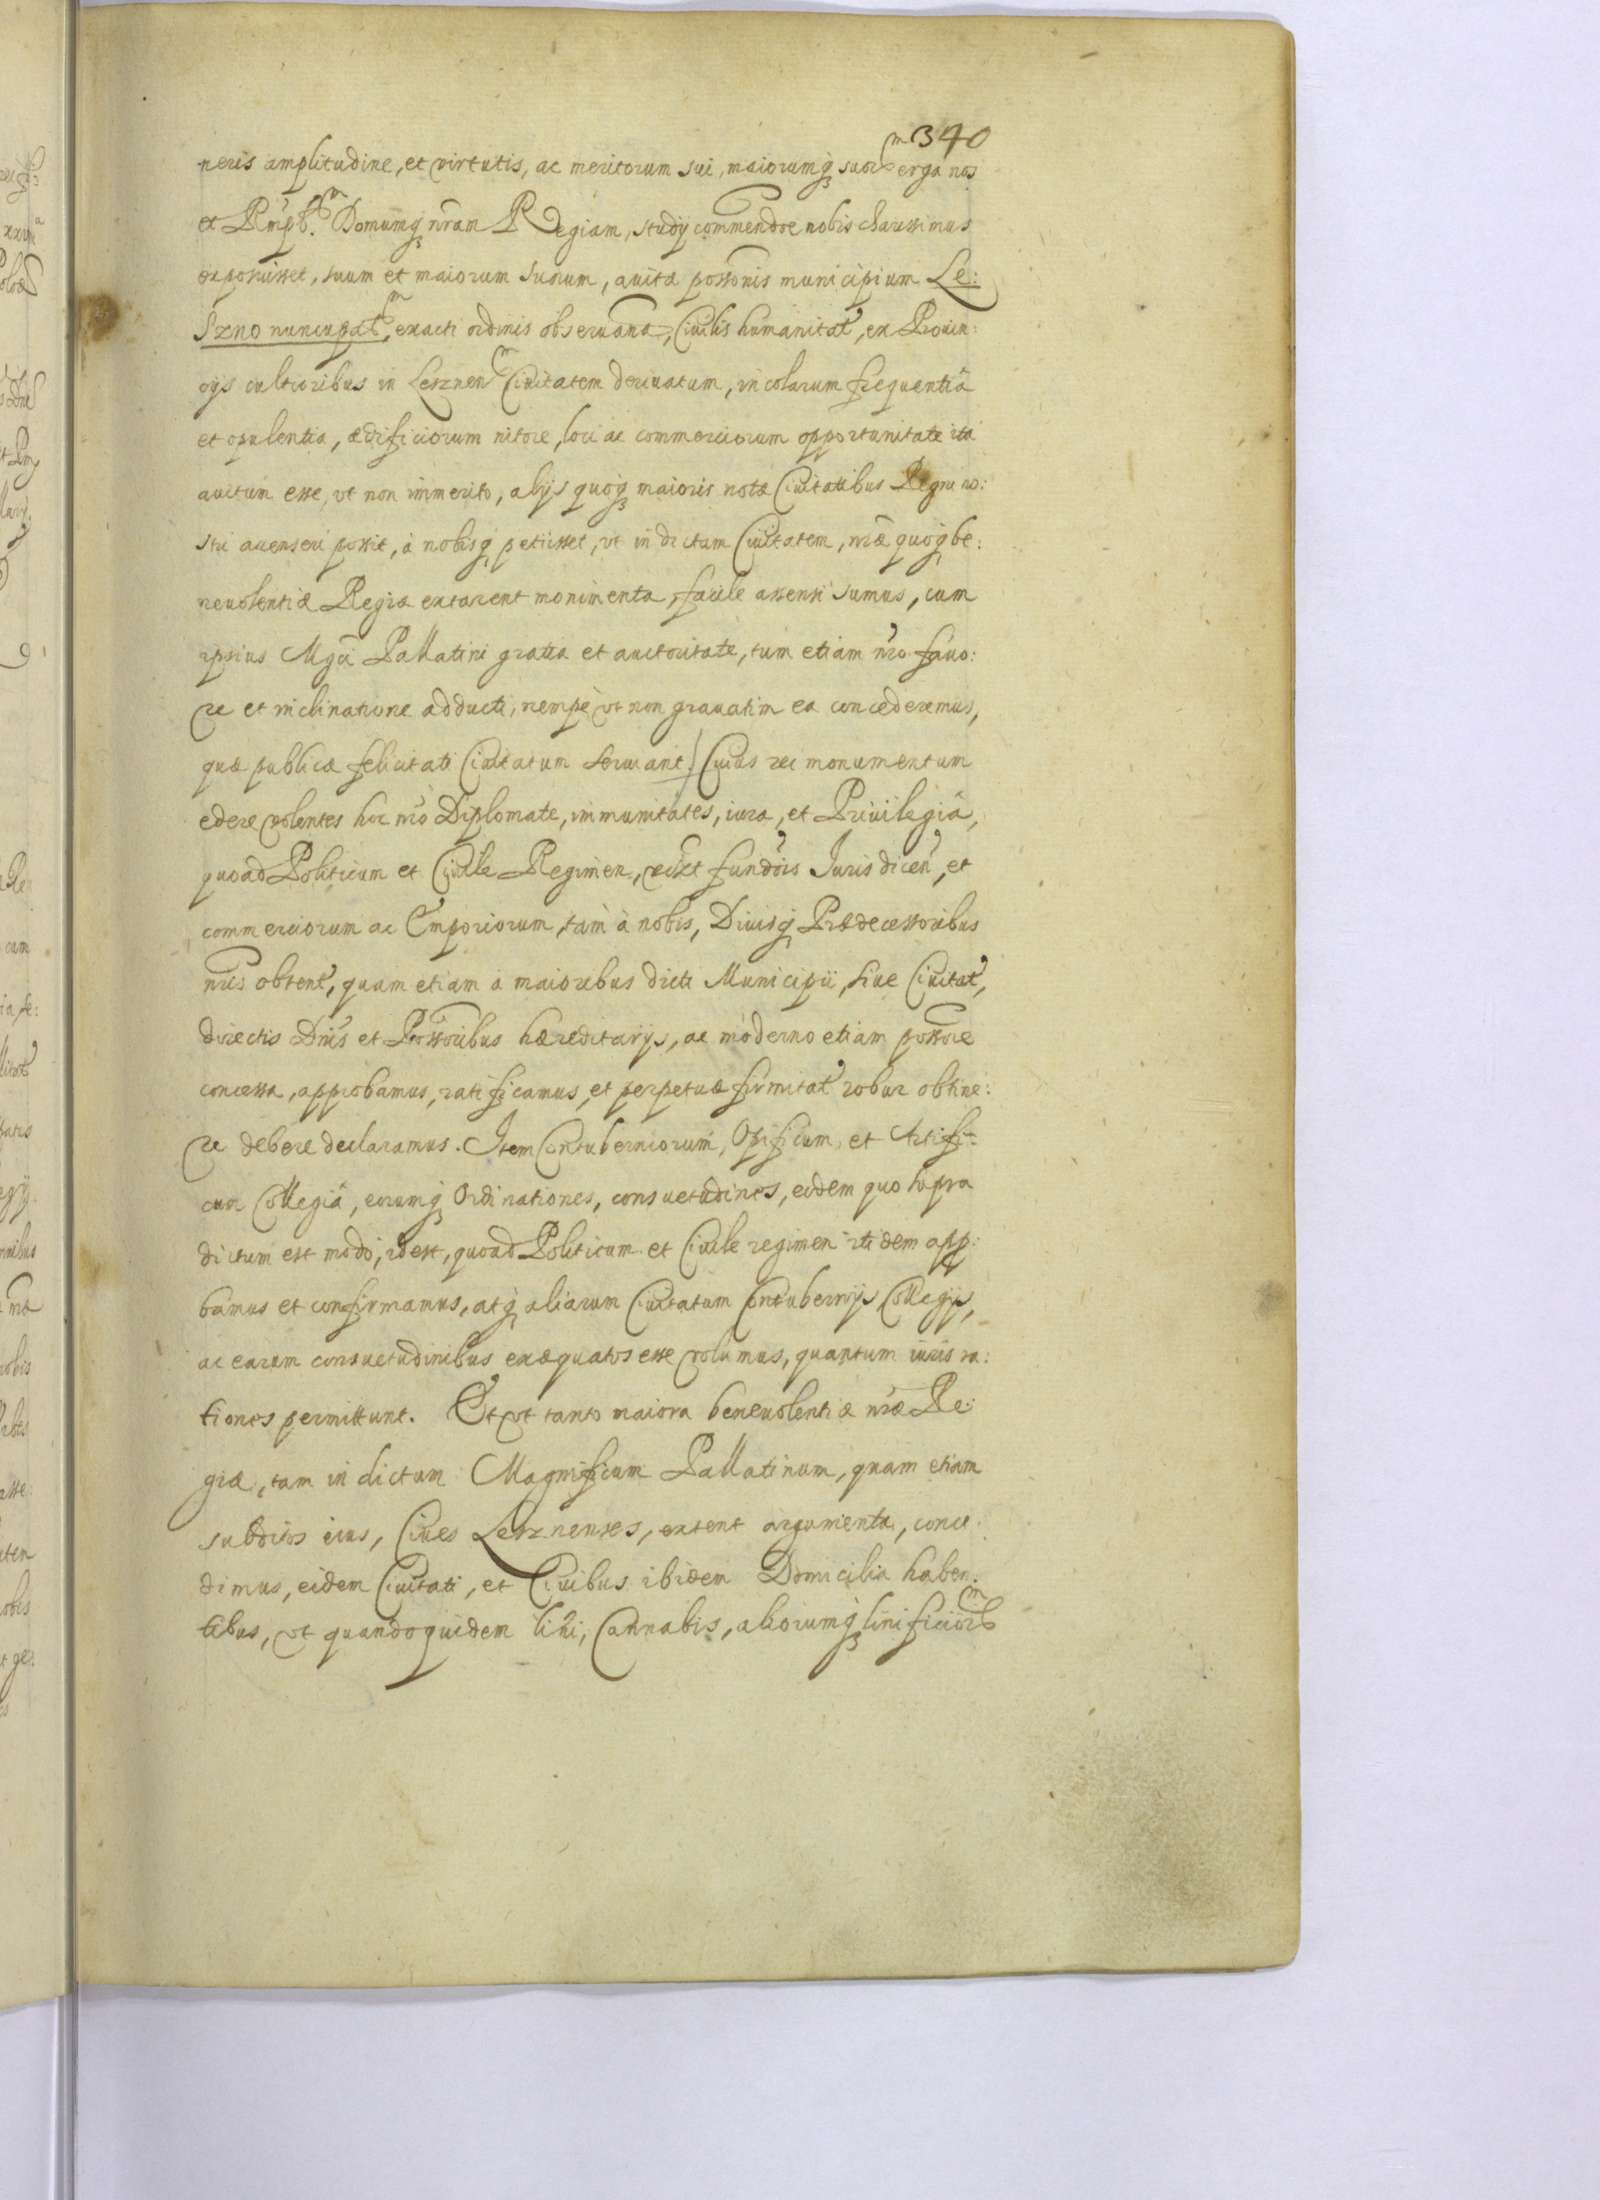 340
neris amplitudine, et virtutis, ac meritorum sui, maiorumq; suorm erga nos
et Rempb.m Domumq; nram Regiam, studij commendoe nobis charissimus
exposuisset, suum et maiorum suorum, avitæ possonis municipium Le:
Szno nuncupatm, exacti ordinis observana, Civilis humanitat, ex Provin:
cijs cultioribus in Lesznenm Civitatem derivatum, incolarum frequentiâ
et opulentia, ædificiorum nitore, loci ac commerciorum opportunitate ita
auctum esse, vt non immerito, alijs quoq; maioris notæ Civitatibus Regni no:
stri accenseri possit, à nobisq; petiisset, vt in dictam Civitatem, nræ quoq; be:
nevolentiæ Regiæ extarent monimenta, facile assensi sumus, cum
ipsius Mgci Pallatini gratia et auctoritate, tum etiam nro favo:
re et inclinatione adducti, nempè vt non gravatim ea concederemus,
quæ publicæ felicitati Civitatum serviant) Cuius rei monumentum
edere volentes hoc nro Diplomate, immunitates, iura, et Privilegia,
quoad Politicum et Civile Regimen, fundois Juris dicen, et
commerciorum ac Emporiorum, tam à nobis, Divisq; Prædecessoribus
nris obtent, quam etiam a maioribus dicti Municipii, sive Civitat,
directis Dnis et Possoribus hæreditarijs, ac moderno etiam possore
concessa, approbamus, ratificamus, et perpetuæ firmitat robur obtine:
re debere declaramus. Item Contuberniorum, Opificum, et Artifi=
cum Collegia, eorumq; Ordinationes, consuetudines, eodem quo supra
dictum est modo, idest, quoad Politicum et Civile regimen itidem app:
bamus et confirmamus, atq; aliarum Civitatum Contubernijs Collegijs,
ac earum consuetudinibus exæquatos esse volumus, quantum iuris ra:
tiones permittunt. Et vt tanto maiora benevolentiæ nræ Re:
giæ, tam in dictum Magnificum Pallatinum, quam etiam
subditos eius, Cives Lesznenses, extent argumenta, conce:
dimus, eidem Civitati, et Civibus ibidem Domicilia haben:
tibus, vt quandoquidem lini, Cannabis, aliorumq; linificiorm